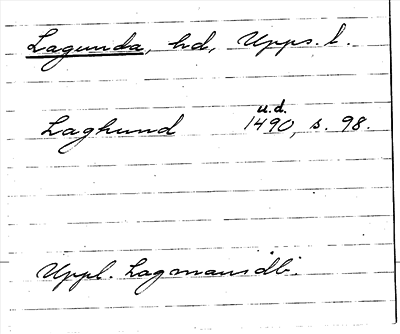 Lagunda, hd, Upps. l.
u.d.
Laghund 1490, s. 98.
Uppl. Lagmansdb.